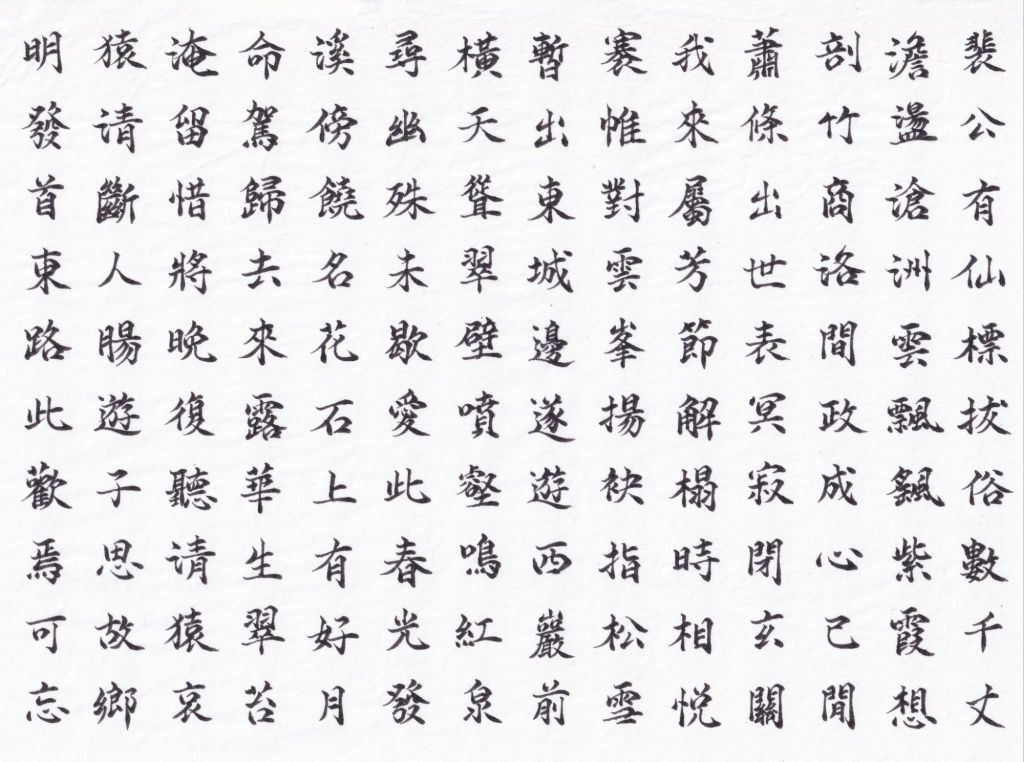 裴公有仙標拔俗數千丈
澹盪滄洲雲飄颻紫霞想
剖竹商洛間政成心已閒
蕭條出世表冥寂閉玄關
我來屬芳節解榻時相悅
褰帷對雲峯揚袂指松雪
暫出東城邊遂遊西巖前
橫天聳翠壁噴壑鳴紅泉
尋幽殊未歇愛此春光發
溪傍饒名花石上有好月
命駕歸去來露華生翠苔
淹留惜將晚復聽清猿哀
猿清斷人腸遊子思故鄉
明發首東路此歡焉可忘